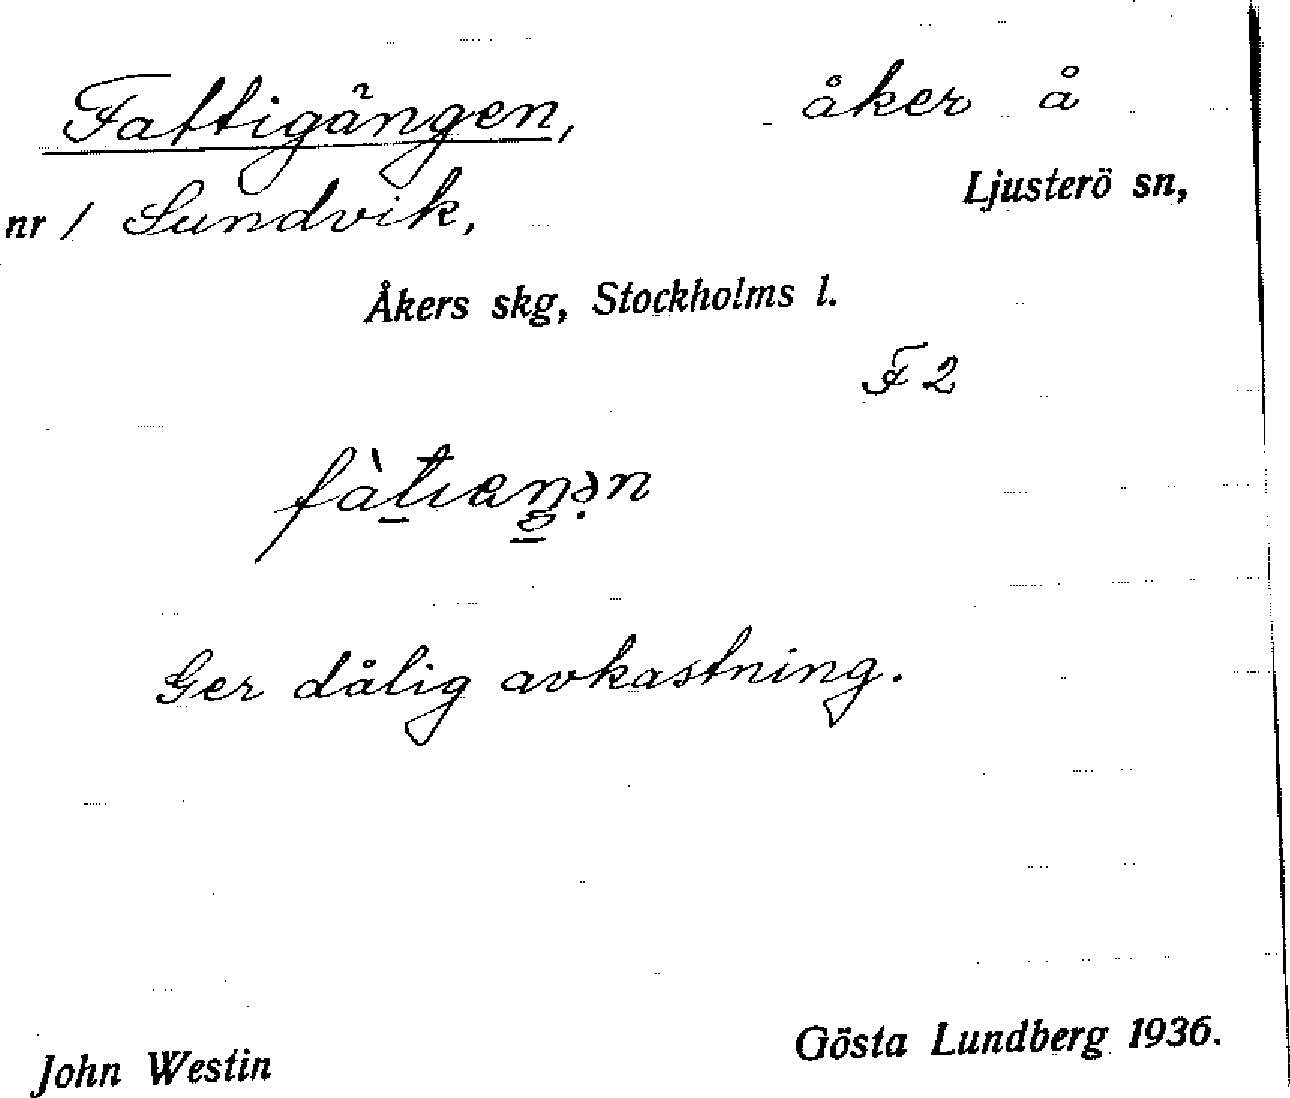 Fattigängen, åker å
Ljusterö sn,
nr 1 Sundvik,
Åkers skg, Stockholms l.
F 2
Ger dålig avkastning.
John Westin Gösta Lundberg 1936.